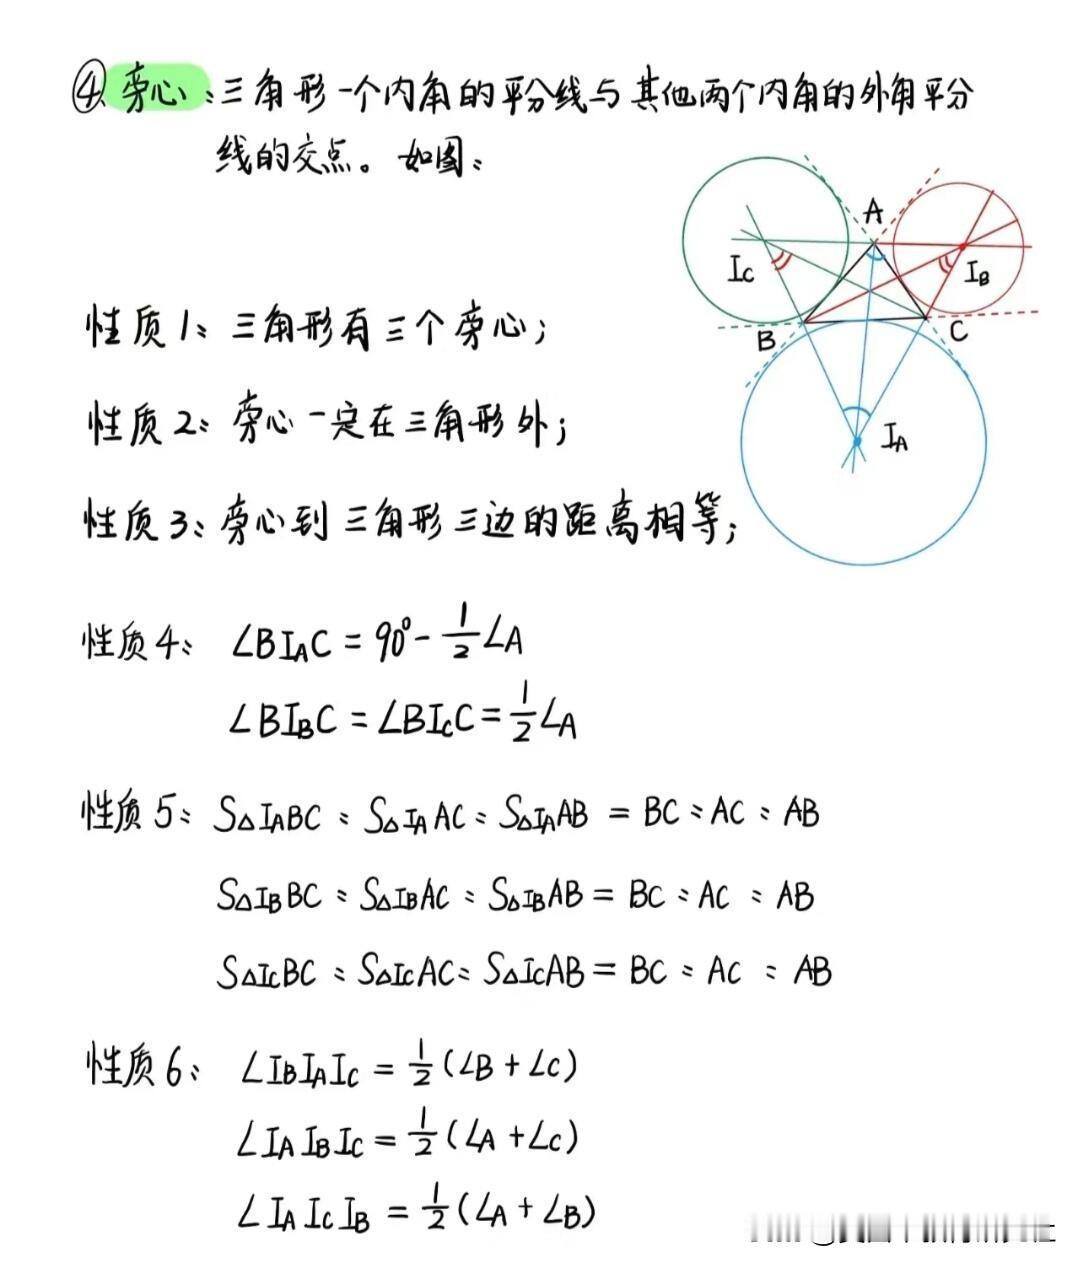 ④ 旁心：三角形一个内角的平分线与其他两个内角的外角平分
线的交点。如图：
A
I_C
I_B
B
C
I_A
性质1：三角形有三个旁心；
性质2：旁心一定在三角形外；
性质3：旁心到三角形三边的距离相等；
性质4：∠BI_AC = 90° - 1/2∠A
∠BI_BC = ∠BI_CC = 1/2∠A
性质5：S△I_ABC : S△I_AAC : S△I_AAB = BC : AC : AB
S△I_BBC : S△I_BAC : S△I_BAB = BC : AC : AB
S△I_CBC : S△I_CAC : S△I_CAB = BC : AC : AB
性质6：∠I_BI_AI_C = 1/2(∠B + ∠C)
∠I_AI_BI_C = 1/2(∠A + ∠C)
∠I_AI_CI_B = 1/2(∠A + ∠B)